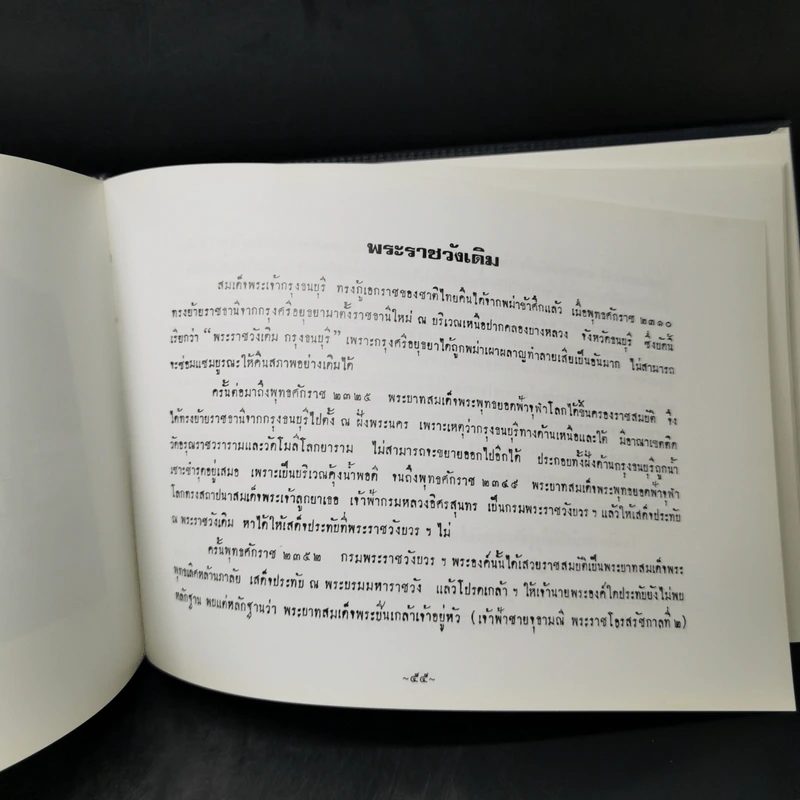 พระราชวังเดิม
สมเด็จพระเจ้ากรุงธนบุรี ทรงกู้เอกราชของชาติไทยคืนได้จากพม่าข้าศึกแล้ว เมื่อพุทธศักราช ๒๓๑๐
ทรงย้ายราชธานีจากกรุงศรีอยุธยามาตั้งราชธานีใหม่ ณ บริเวณเหนือปากคลองบางหลวง จังหวัดธนบุรี ซึ่งบัดนี้
เรียกว่า “พระราชวังเดิม กรุงธนบุรี” เพราะกรุงศรีอยุธยาได้ถูกพม่าเผาผลาญทำลายเสียเป็นอันมาก ไม่สามารถ
จะซ่อมแซมบูรณะให้คืนสภาพอย่างเดิมได้
ครั้นต่อมาถึงพุทธศักราช ๒๓๒๕ พระบาทสมเด็จพระพุทธยอดฟ้าจุฬาโลกได้ขึ้นครองราชสมบัติ จึง
ได้ทรงย้ายราชธานีจากกรุงธนบุรีไปตั้ง ณ ฝั่งพระนคร เพราะเหตุว่ากรุงธนบุรีทางด้านเหนือและใต้ มีอาณาเขตติด
วัดอรุณราชวรารามและวัดโมลีโลกยาราม ไม่สามารถจะขยายออกไปอีกได้ ประกอบทั้งฝั่งด้านกรุงธนบุรีถูกน้ำ
เซาะชำรุดอยู่เสมอ เพราะเป็นบริเวณคุ้งน้ำพอดี จนถึงพุทธศักราช ๒๓๔๕ พระบาทสมเด็จพระพุทธยอดฟ้าจุฬา
โลกทรงสถาปนาสมเด็จพระเจ้าลูกยาเธอ เจ้าฟ้ากรมหลวงอิศรสุนทร เป็นกรมพระราชวังบวร ฯ แล้วให้เสด็จประทับ
ณ พระราชวังเดิม หาได้ให้เสด็จประทับที่พระราชวังบวร ฯ ไม่
ครั้นพุทธศักราช ๒๓๕๒ กรมพระราชวังบวร ฯ พระองค์นั้นได้เสวยราชสมบัติเป็นพระบาทสมเด็จพระ
พุทธเลิศหล้านภาลัย เสด็จประทับ ณ พระบรมมหาราชวัง แล้วโปรดเกล้า ฯ ให้เจ้านายพระองค์ใดประทับยังไม่พบ
หลักฐาน พบแต่หลักฐานว่า พระบาทสมเด็จพระปิ่นเกล้าเจ้าอยู่หัว (เจ้าฟ้าชายจุฑามณี พระราชโอรสรัชกาลที่ ๒)
~๕๕~